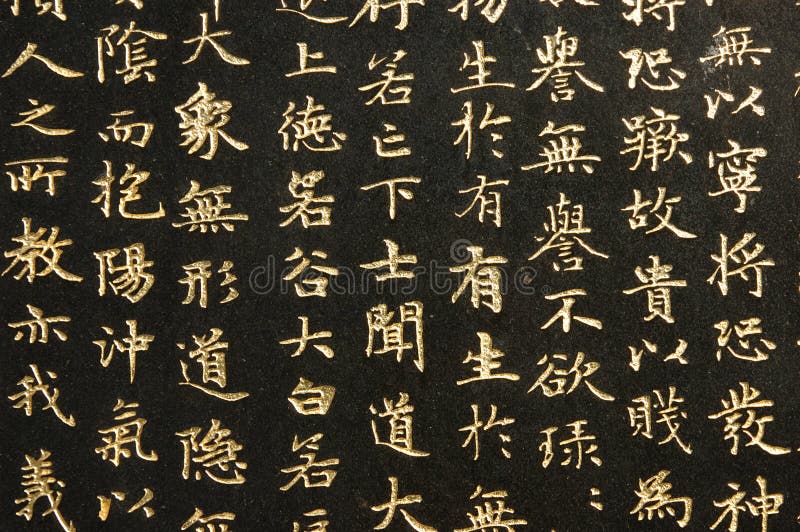 無以寧將恐發神
將恐蹶故貴以賤為
譽無譽不欲琭〻
物生於有有生於無
存若亡下士聞道大
上德若谷大白若
大象無形道隱無
陰而抱陽沖氣以
人之所教亦我義
dreamstime